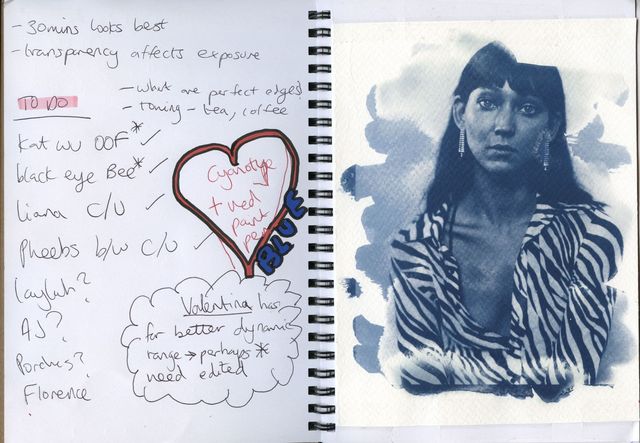 - 30mins looks best
- transparency affects exposure
- what are perfect edges?
- toning - tea, coffee
TO DO
Kat wu OOF* ✓
black eye Bee* ✓
liana C/U ✓
Pheebs b/w C/U ✓
Layluh?
AJ?
Porches?
Florence
Cyanotype
+ red
paint
pen
BLUE
Valentina has
far better dynamic
range → perhaps *
need edited